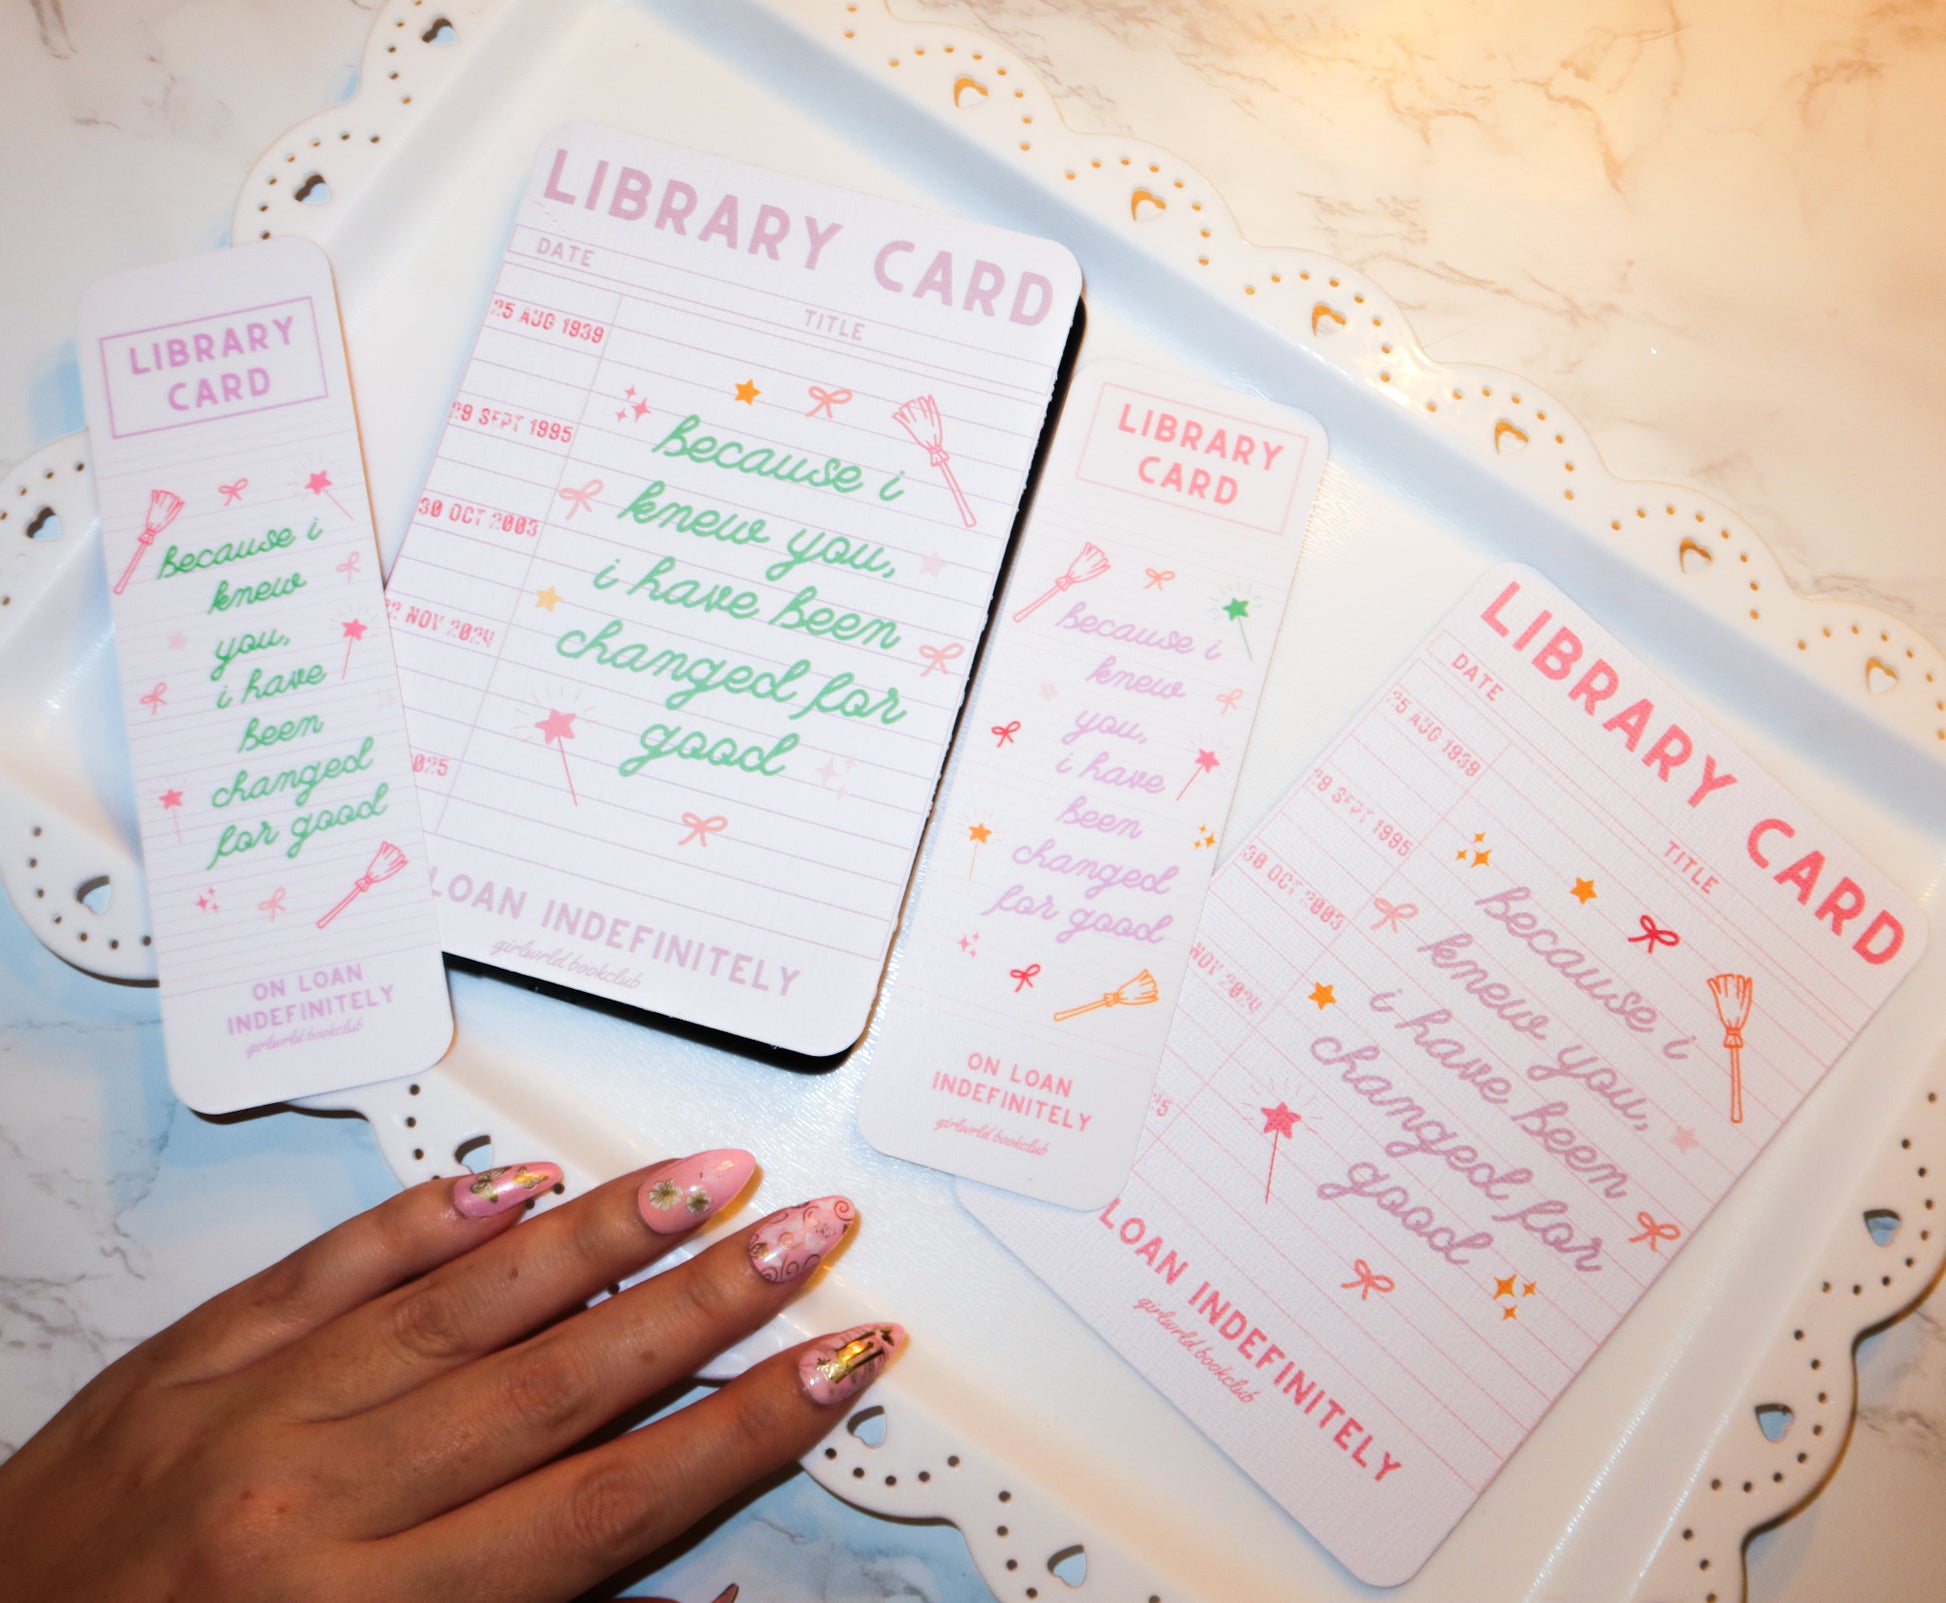 LIBRARY
CARD
because i
knew
you,
i have
been
changed
for good
ON LOAN
INDEFINITELY
girlworld bookclub
LIBRARY CARD
DATE
TITLE
25 AUG 1939
29 SEPT 1995
30 OCT 2003
22 NOV 2024
025
because i
knew you,
i have been
changed for
good
LOAN INDEFINITELY
girlworld bookclub
LIBRARY
CARD
because i
knew
you,
i have
been
changed
for good
ON LOAN
INDEFINITELY
girlworld bookclub
LIBRARY CARD
DATE
TITLE
25 AUG 1939
29 SEPT 1995
30 OCT 2003
NOV 2024
25
because i
knew you,
i have been
changed for
good
LOAN INDEFINITELY
girlworld bookclub